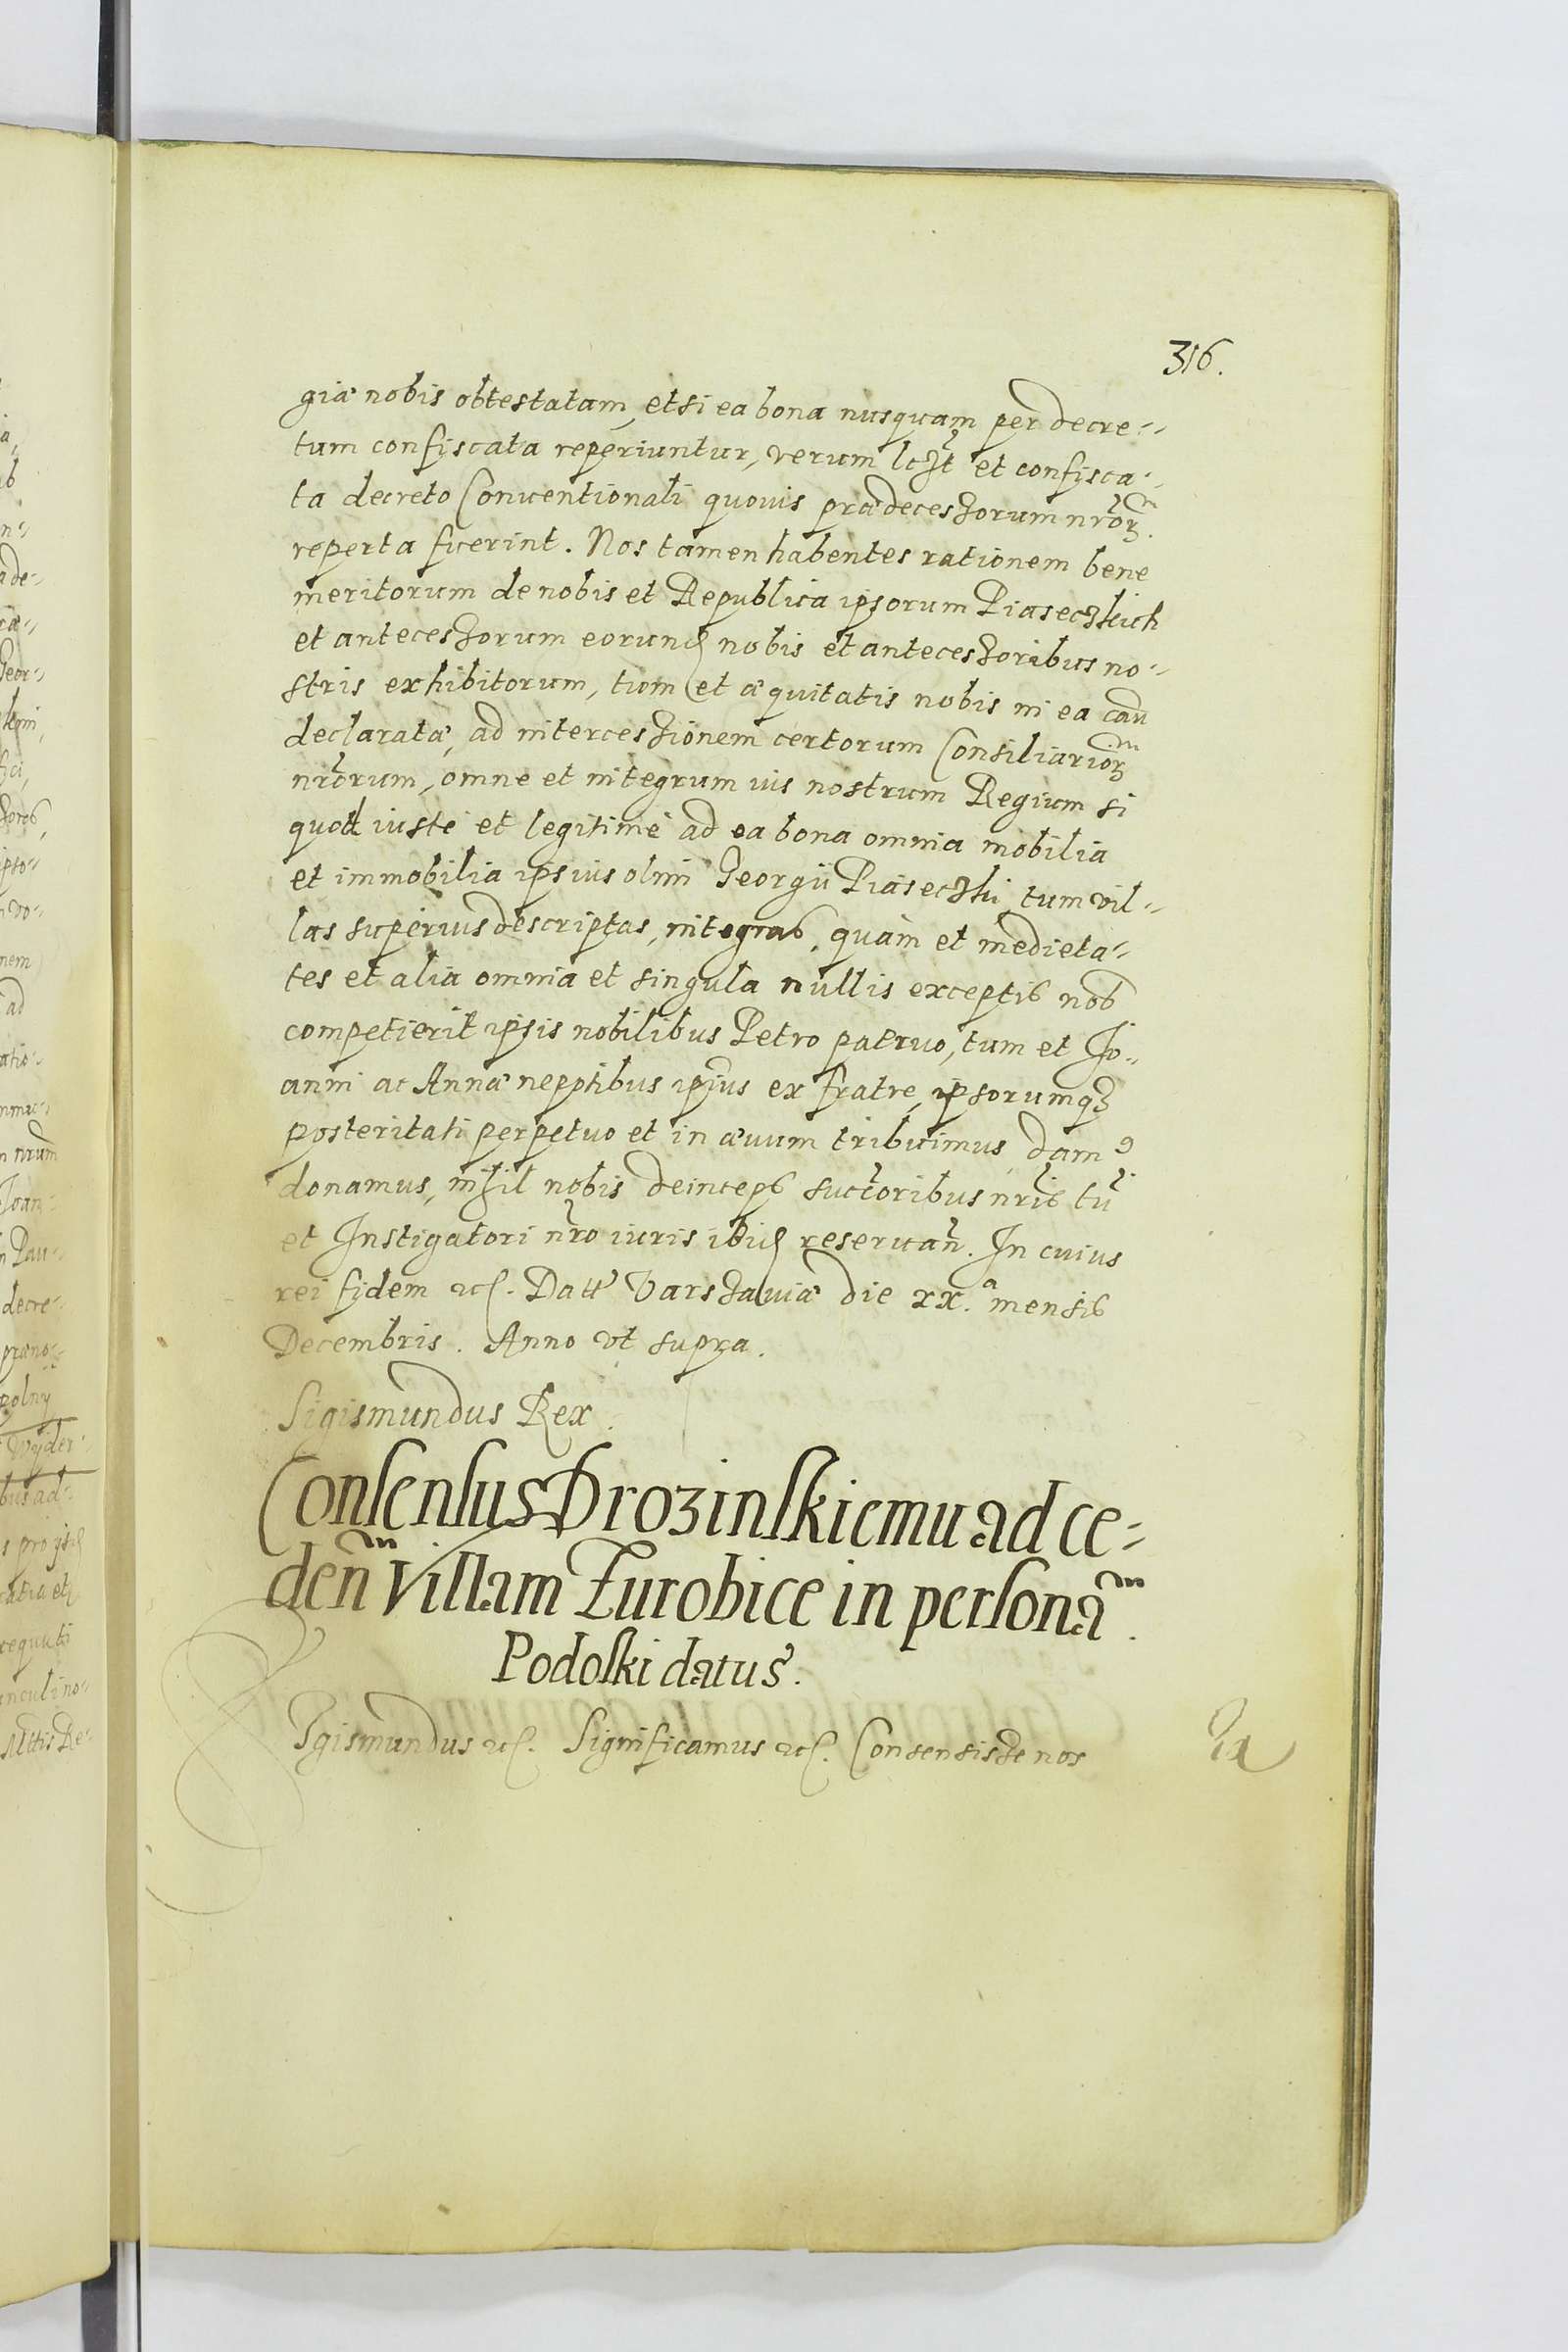 316.
giæ nobis obtestatam, etsi ea bona nusquam per decre-
tum confiscata reperiuntur, verum et confisca-
ta decreto Conventionali quovis prædecessorum nror̃
reperta fuerint. Nos tamen habentes rationem bene
meritorum de nobis et Republica ipsorum Piaseczkich
et antecessorum eorund nobis et antecessoribus no-
stris exhibitorum, tum et æquitatis nobis in ea cau
declaratæ, ad intercessionem certorum Consiliarior̃
nrorum, omne et integrum ius nostrum Regium si
quod iustè et legitimè ad ea bona omnia mobilia
et immobilia ipsius olim Georgii Piaseczki, tum vil-
las superius descriptas, integras, quàm et medieta-
tes et alia omnia et singula nullis exceptis nob
competierit ipsis nobilibus Petro patruo, tum et Jo-
anni ac Annæ nepotibus ipsius ex fratre, ipsorumq3
posteritati perpetuo et in ævum tribuimus dam9
donamus, nihil nobis deinceps succoribus nris tũ
et Instigatori nro iuris ibid reservan. In cuius
rei fidem etc. Datt Varsaviæ die xx.a mensis
Decembris. Anno vt supra.
Sigismundus Rex.
Consensus Drozinskiemu ad ce-
den Villam Turobice in persona
Podoski datus.
Sgismundus etc. Significamus etc. Consensisse nos